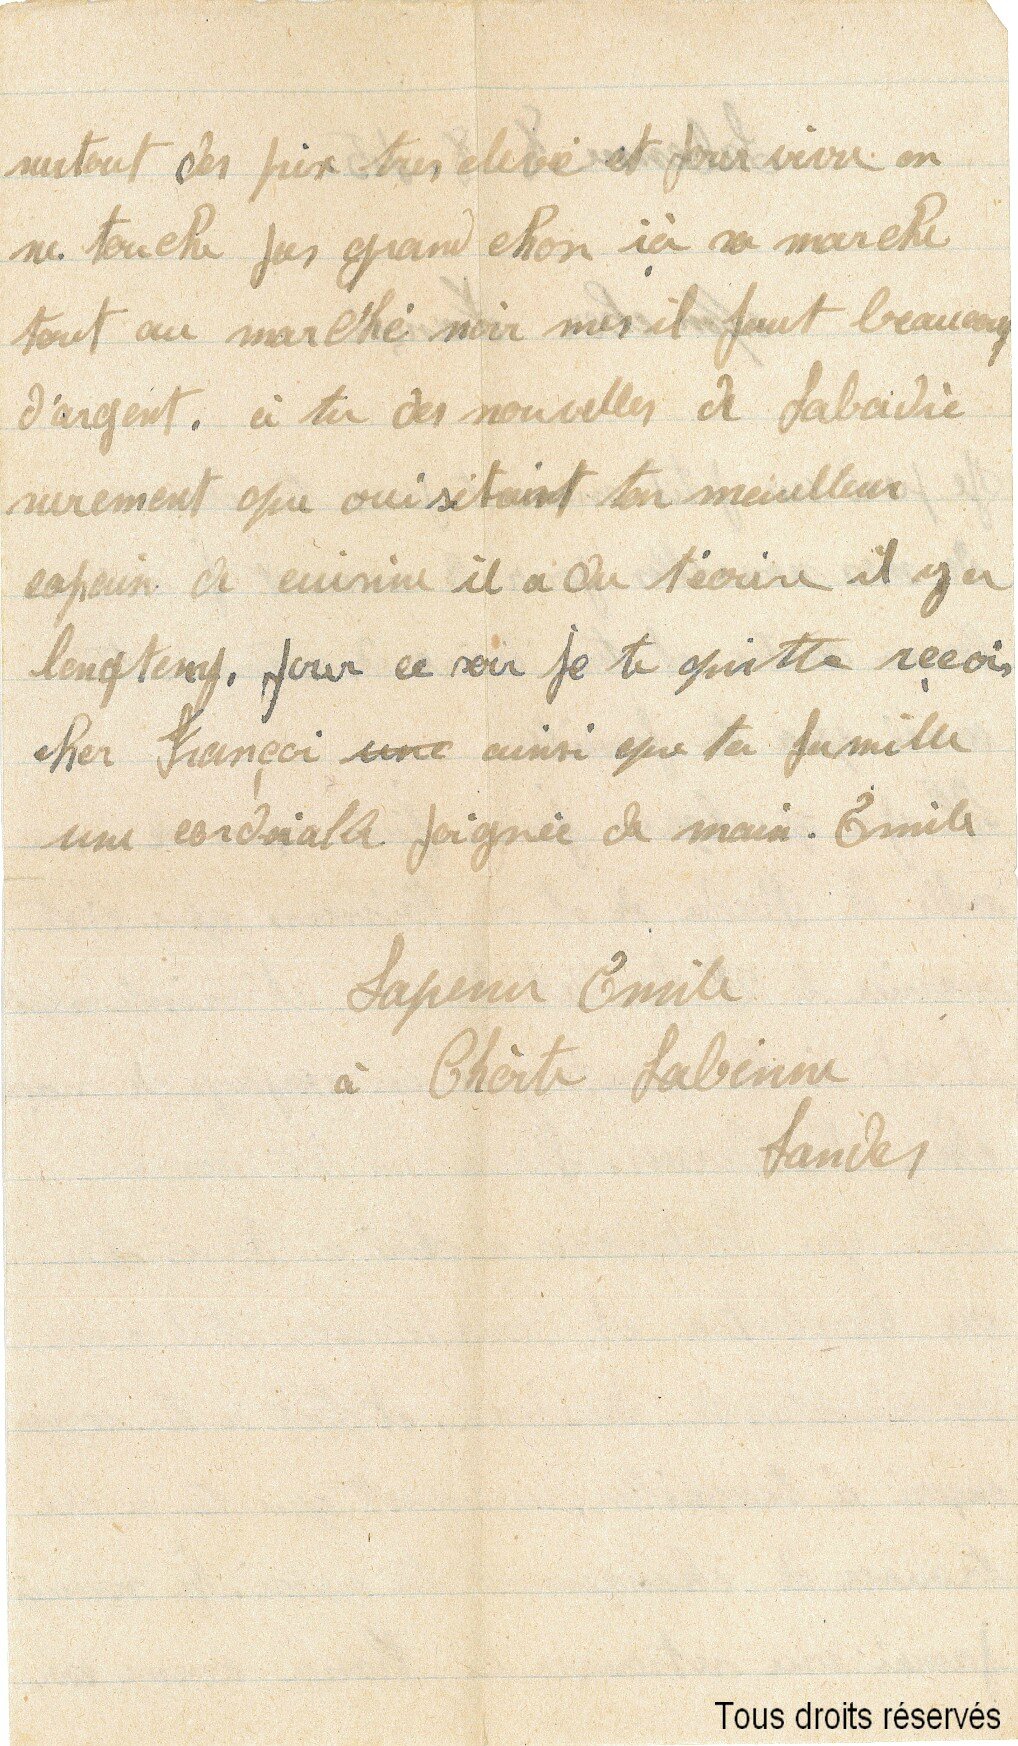 surtout des prix tres elevé et pour vivre on
ne touche pas grand chose içà sa marche
tout au marché noir mes il faut beaucoup
d'argent. à tu des nouvelles de Labadie
surement que oui sétaint ton meilleur
copain de cuisine il a du técrire il y a
longtemp. pour ce soir je te quitte reçois
cher Françoi une ainsi que ta famille
une cordiale poignée de main. Emile
Lapeur Emile
à Labenne
Landes
Tous droits réservés